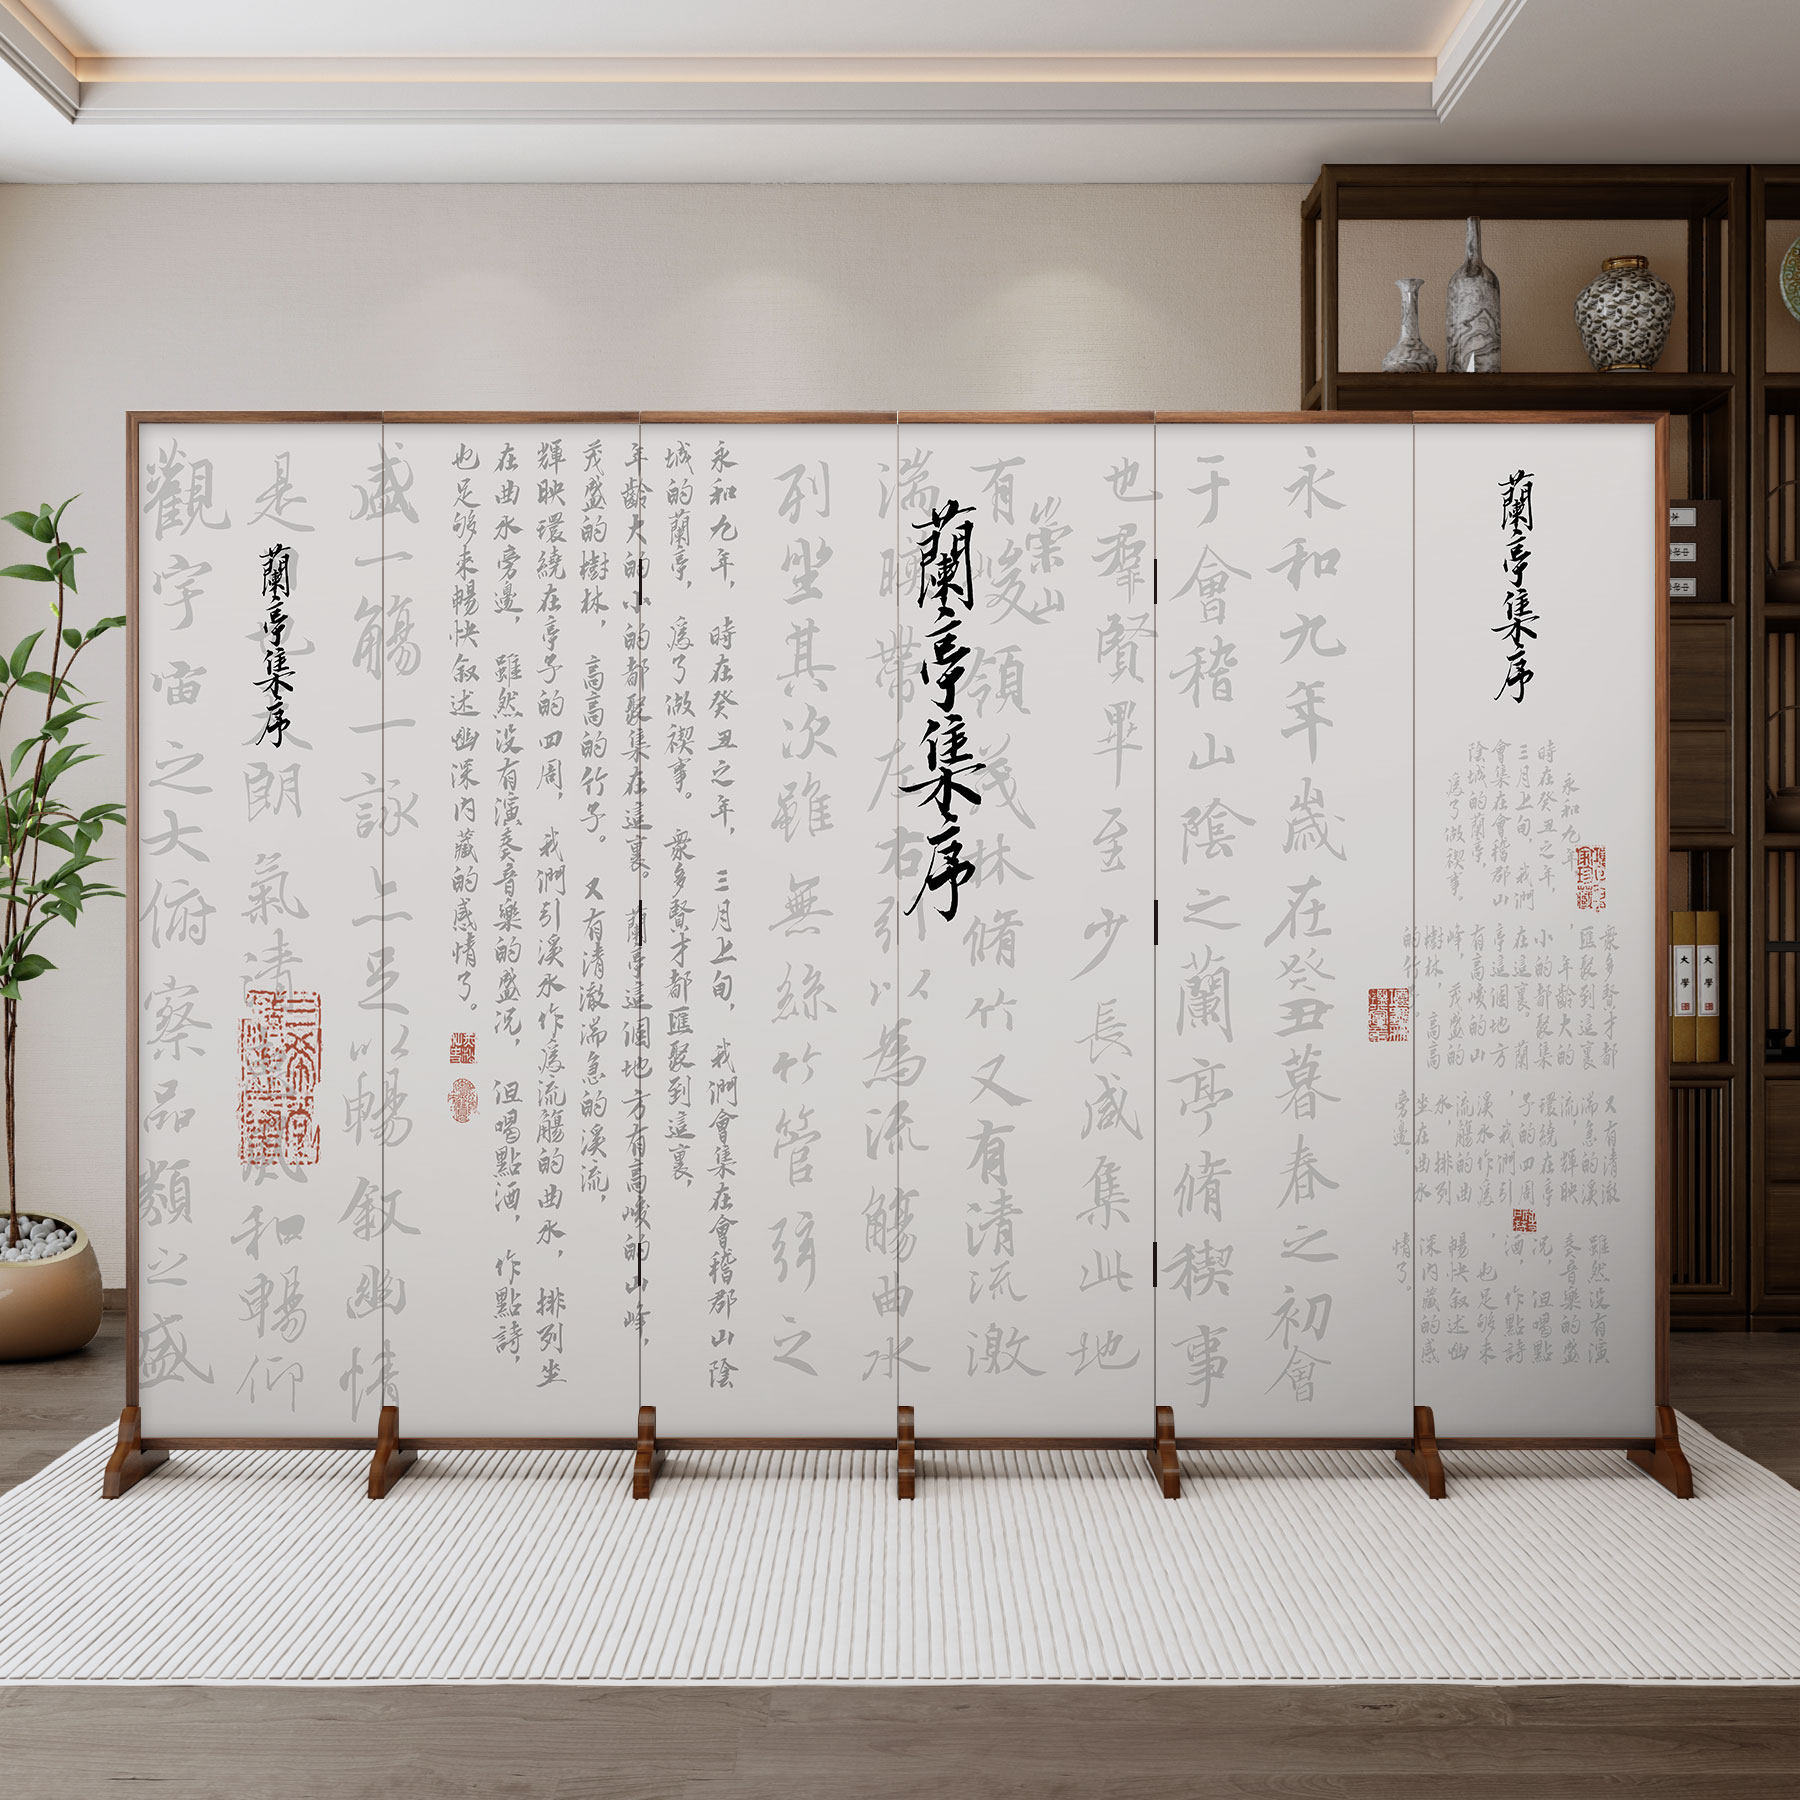 蘭亭集序
永和九年
時在癸丑之年，
三月上旬，我們
會集在會稽郡山
陰城的蘭亭，
爲了做禊事。
衆多賢才都
匯聚到這裏
，年齡大的
小的都聚集
在這裏。蘭
亭這個地方
有高峻的山
峰，茂盛的
樹林，高高
的竹
又有清澈
湍急的溪
流，輝映
環繞在亭
子的四周
，我們引
溪水作爲
流觴的曲
水，排列
坐在曲水
旁邊。
雖然没有演
奏音樂的盛
况，但喝點
酒，作點詩
，也足够來
暢快叙述幽
深内藏的感
情了。
永和九年歲在癸丑暮春之初會
于會稽山陰之蘭亭脩稧事
也羣賢畢至少長咸集此地
有崇山峻領茂林脩竹又有清流激
湍暎帶左右引以爲流觴曲水
蘭亭集序
列坐其次雖無絲竹管弦之
永和九年，時在癸丑之年，三月上旬，我們會集在會稽郡山陰
城的蘭亭，爲了做禊事。衆多賢才都匯聚到這裏，
年齡大的小的都聚集在這裏。蘭亭這個地方有高峻的山峰，
茂盛的樹林，高高的竹子。又有清澈湍急的溪流，
輝映環繞在亭子的四周，我們引溪水作爲流觴的曲水，排列坐
在曲水旁邊，雖然没有演奏音樂的盛况，但喝點酒，作點詩，
也足够來暢快叙述幽深内藏的感情了。
盛一觴一詠亦足以暢叙幽情
是也天朗氣清風和暢仰
蘭亭集序
觀宇宙之大俯察品類之盛
大學
大學